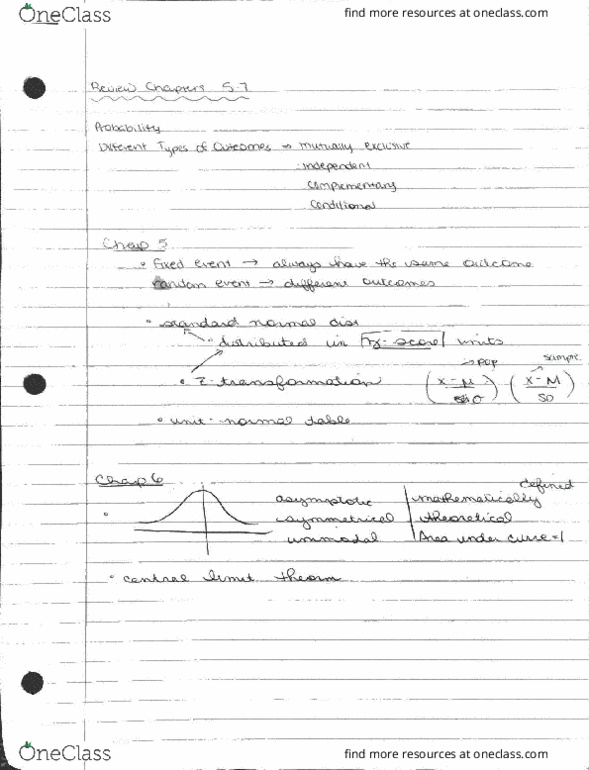 OneClass
find more resources at oneclass.com
Review Chapters 5-7
Probability
Different Types of Outcomes → mutually exclusive
independent
complementary
conditional
Chap 5
• fixed event → always have the same outcome
random event → different outcomes
• standard normal dist
• distributed in z-score units
→ pop
sample
• z-transformation (x-μ / σ) (x-M / SD)
• unit-normal table
Chap 6
defined
asymptotic | mathematically
asymmetrical | theoretical
unimodal | Area under curve=1
• central limit theorm
OneClass
find more resources at oneclass.com